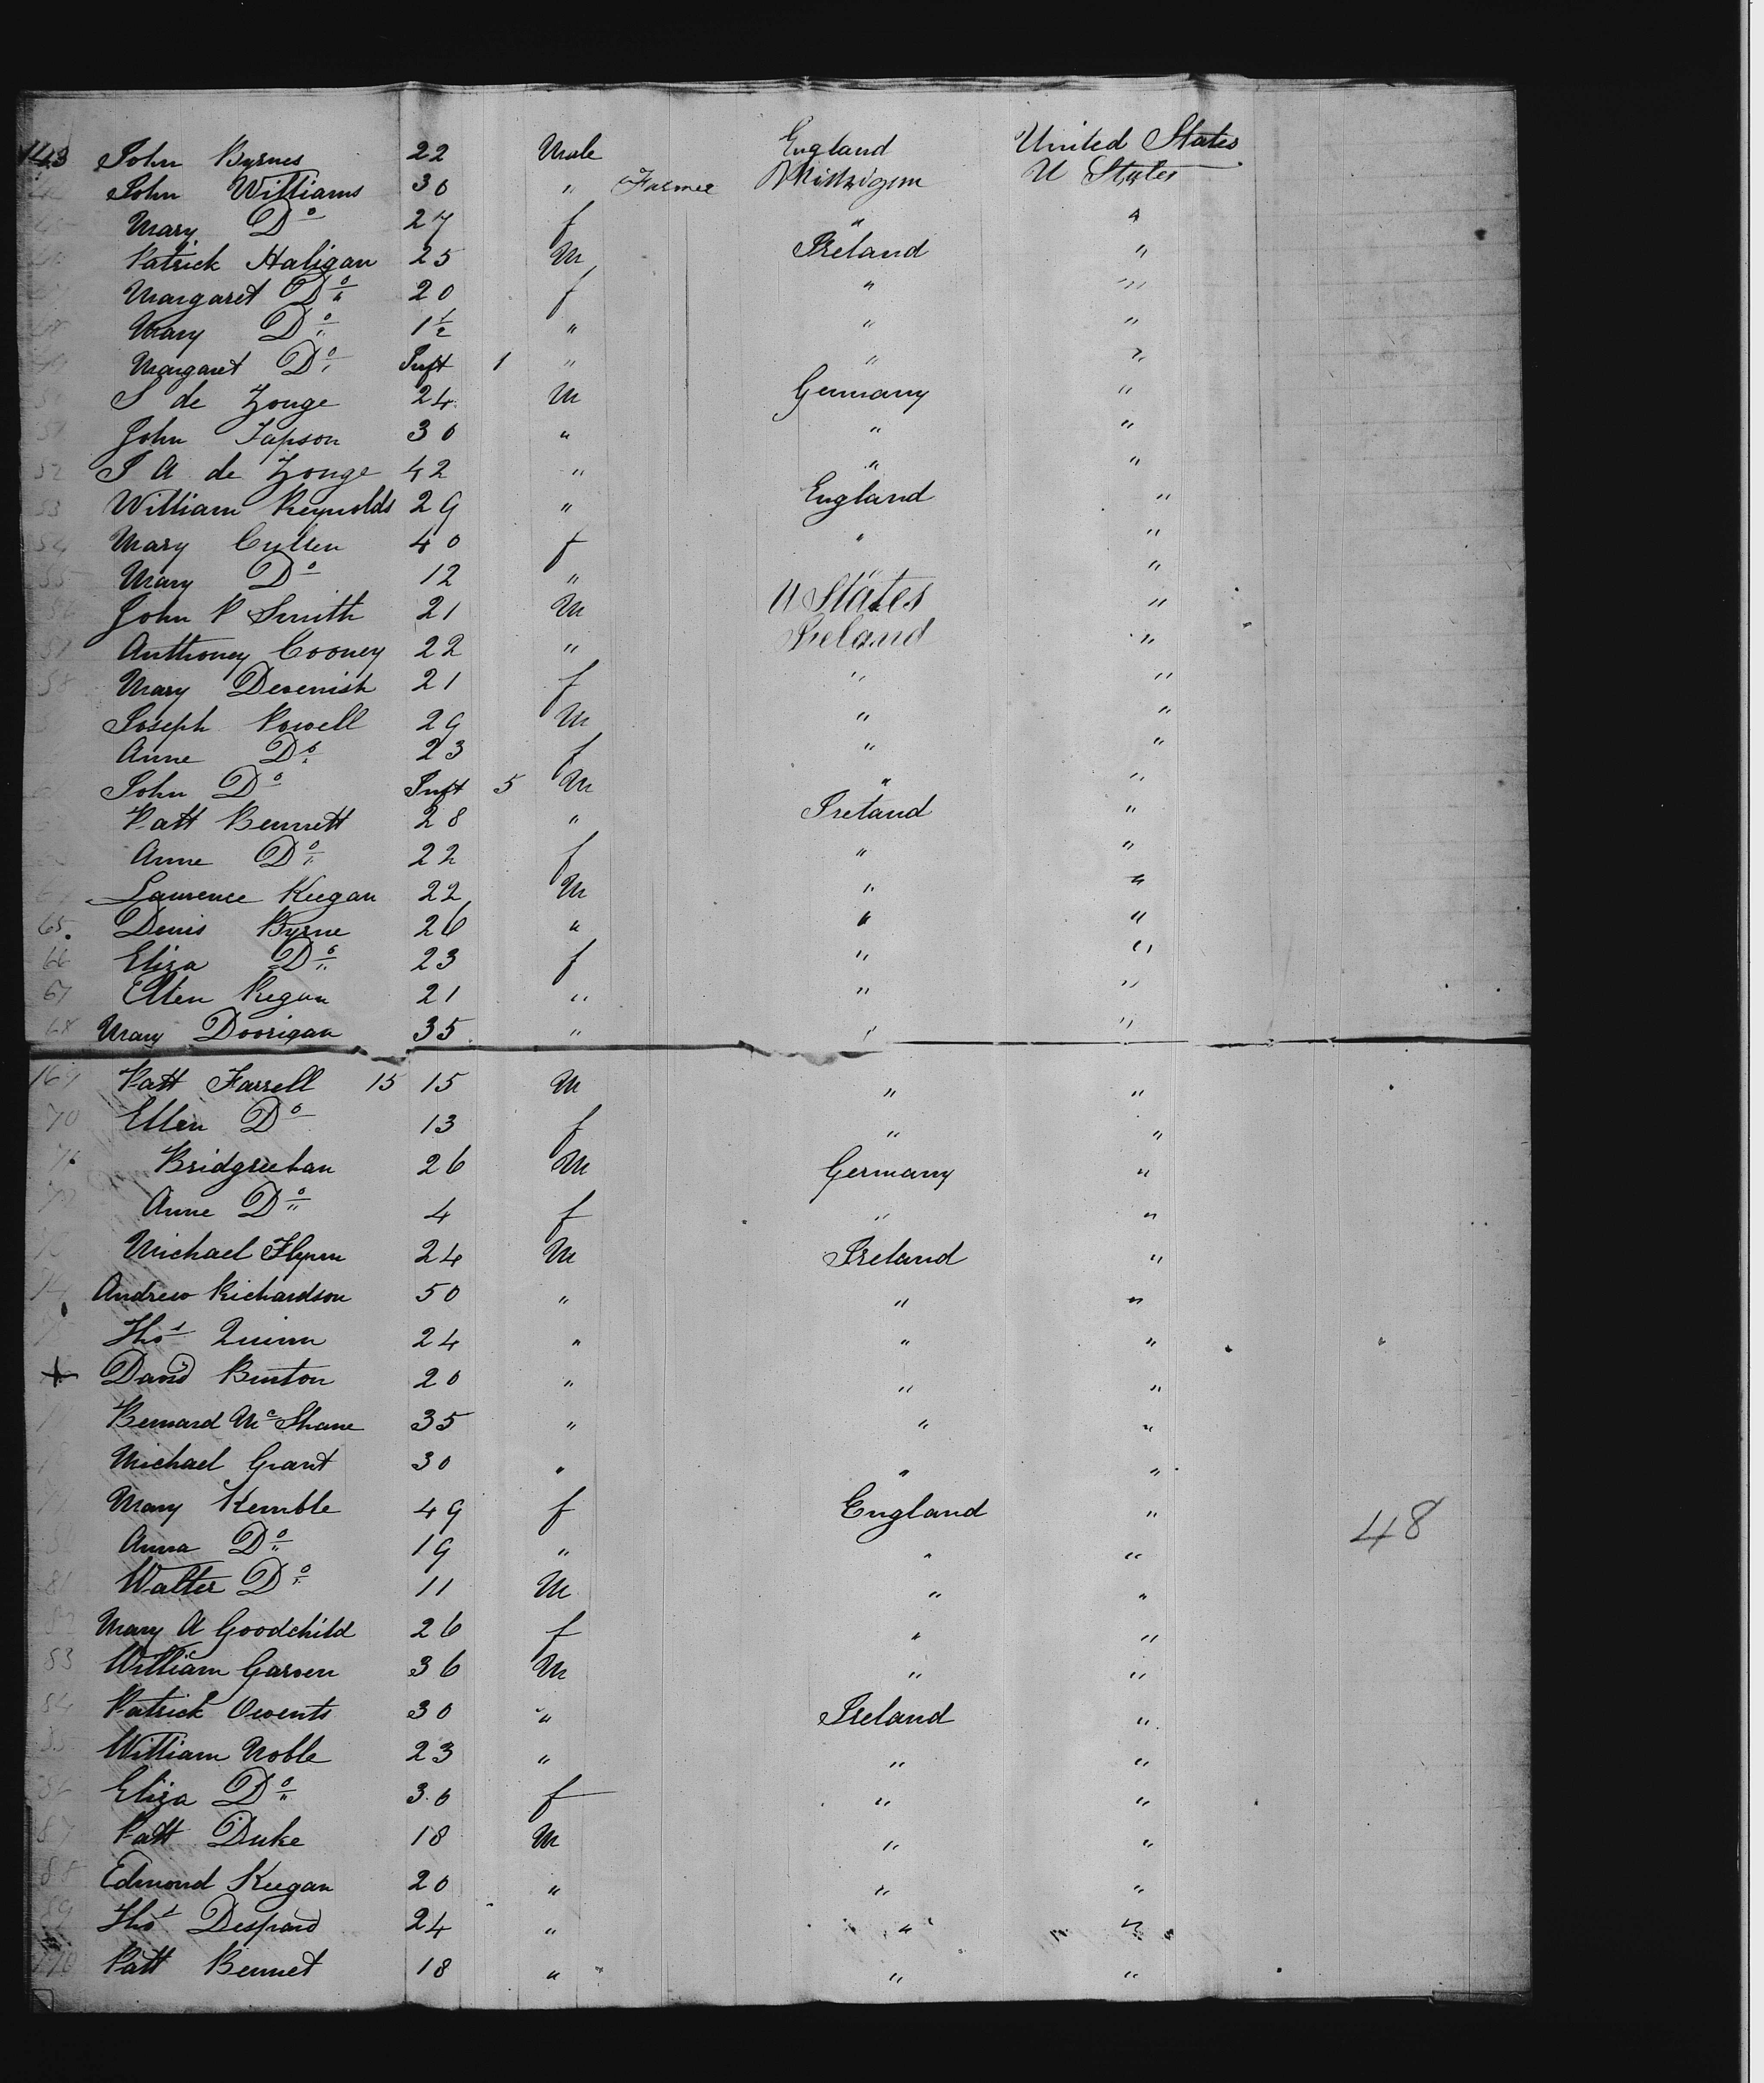 143 John Byrnes 22 Male England United States
John Williams 30 " Farmer Michigan U States
Mary Do 27 f " "
Patrick Haligan 25 M Ireland "
Margaret Do 20 f " "
Mary Do 1½ " " "
Margaret Do Inft 1 " " "
50 S de Zonge 24 M Germany "
51 John Japson 30 " " "
52 I A de Zonge 42 " " "
53 William Reynolds 29 " England "
54 Mary Cullen 40 f " "
55 Mary Do 12 " " "
56 John P Smith 21 M U States "
57 Anthoney Cooney 22 " Ireland "
58 Mary Devenish 21 f " "
Joseph Powell 29 M " "
Anne Do 23 f " "
John Do Inft 5 M " "
Patt Bennett 28 " Ireland "
Anne Do 22 f " "
Lawrence Keegan 22 M " "
65 Denis Byrne 26 " " "
66 Eliza Do 23 f " "
67 Ellen Regan 21 " " "
68 Mary Doorigan 35 " " "
169 Patt Farrell 15 15 M " "
70 Ellen Do 13 f " "
71 Bridgreehan 26 M Germany "
Anne Do 4 f " "
Michael Flynn 24 M Ireland "
74 Andrew Richardson 50 " " "
Thos Quinn 24 " " "
+ David Binton 20 " " "
Bernard Mc Shane 35 " " "
Michael Grant 30 " " "
Mary Kemble 49 f England "
48
Anna Do 19 " " "
81 Walter Do 11 M " "
82 Mary A Goodchild 26 f " "
83 William Garven 36 M " "
84 Patrick Owents 30 " Ireland "
85 William Noble 23 " " "
86 Eliza Do 30 f " "
87 Patt Duke 18 M " "
88 Edmond Keegan 20 " " "
89 Thos Despard 24 " " "
190 Patt Bennet 18 " " "